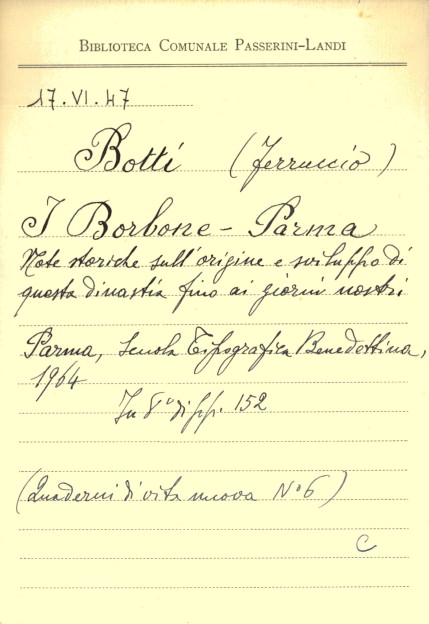 BIBLIOTECA COMUNALE PASSERINI-LANDI
17.VI.47
Botti (Ferruccio)
I Borbone - Parma
Note storiche sull'origine e sviluppo di
questa dinastia fino ai giorni nostri
Parma, Scuola Tipografica Benedettina,
1964
In 8° di pp. 152
(Quaderni di vita nuova N° 6)
C